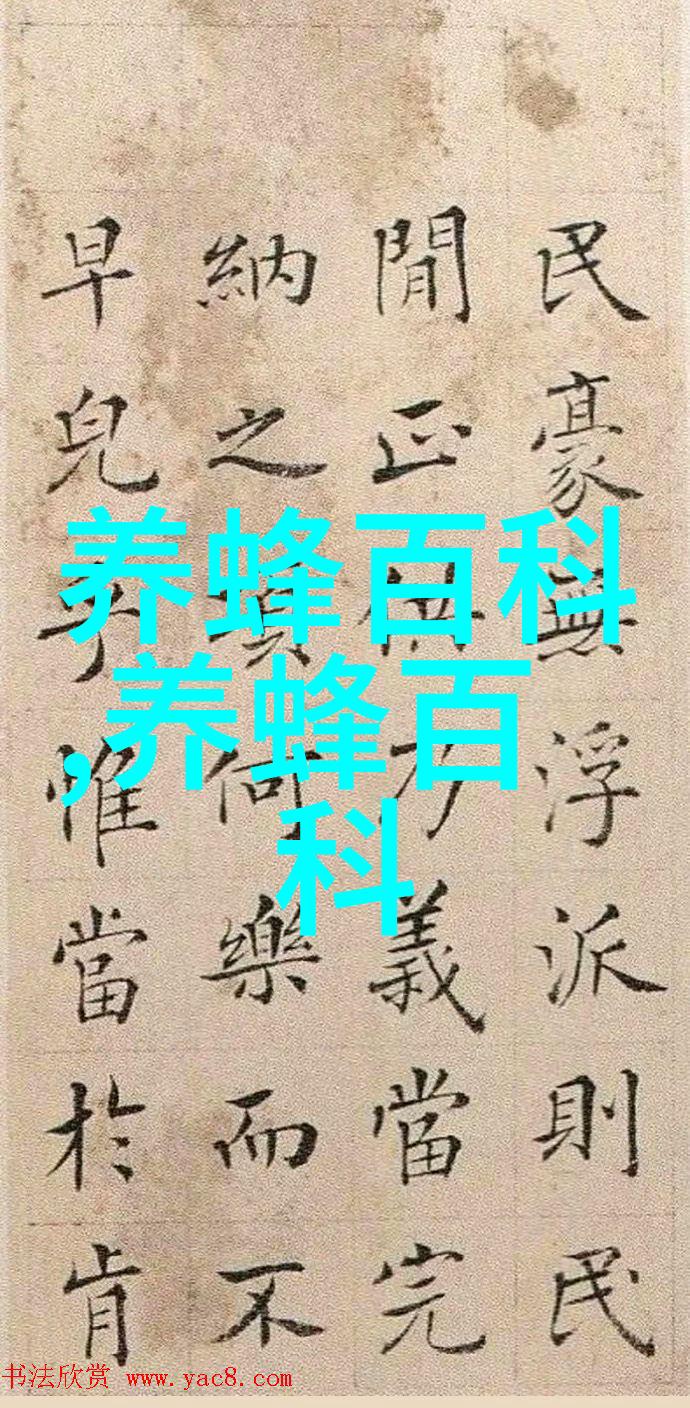 民豪無浮派則民
閒正供義當完
納之何樂而不
早乎惟當於肯
养蜂百科
,养蜂百
科
书法欣赏 www.yac8.com